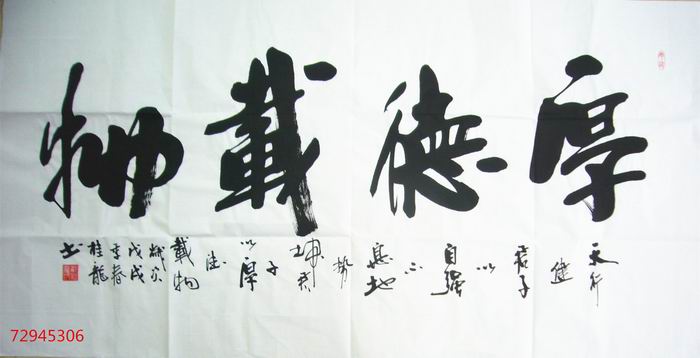 厚德載物
天行
健
君子
以
自强
不
息地
势
坤君
子
以厚
德
載物
戊戌
春
桂龍
书
72945306